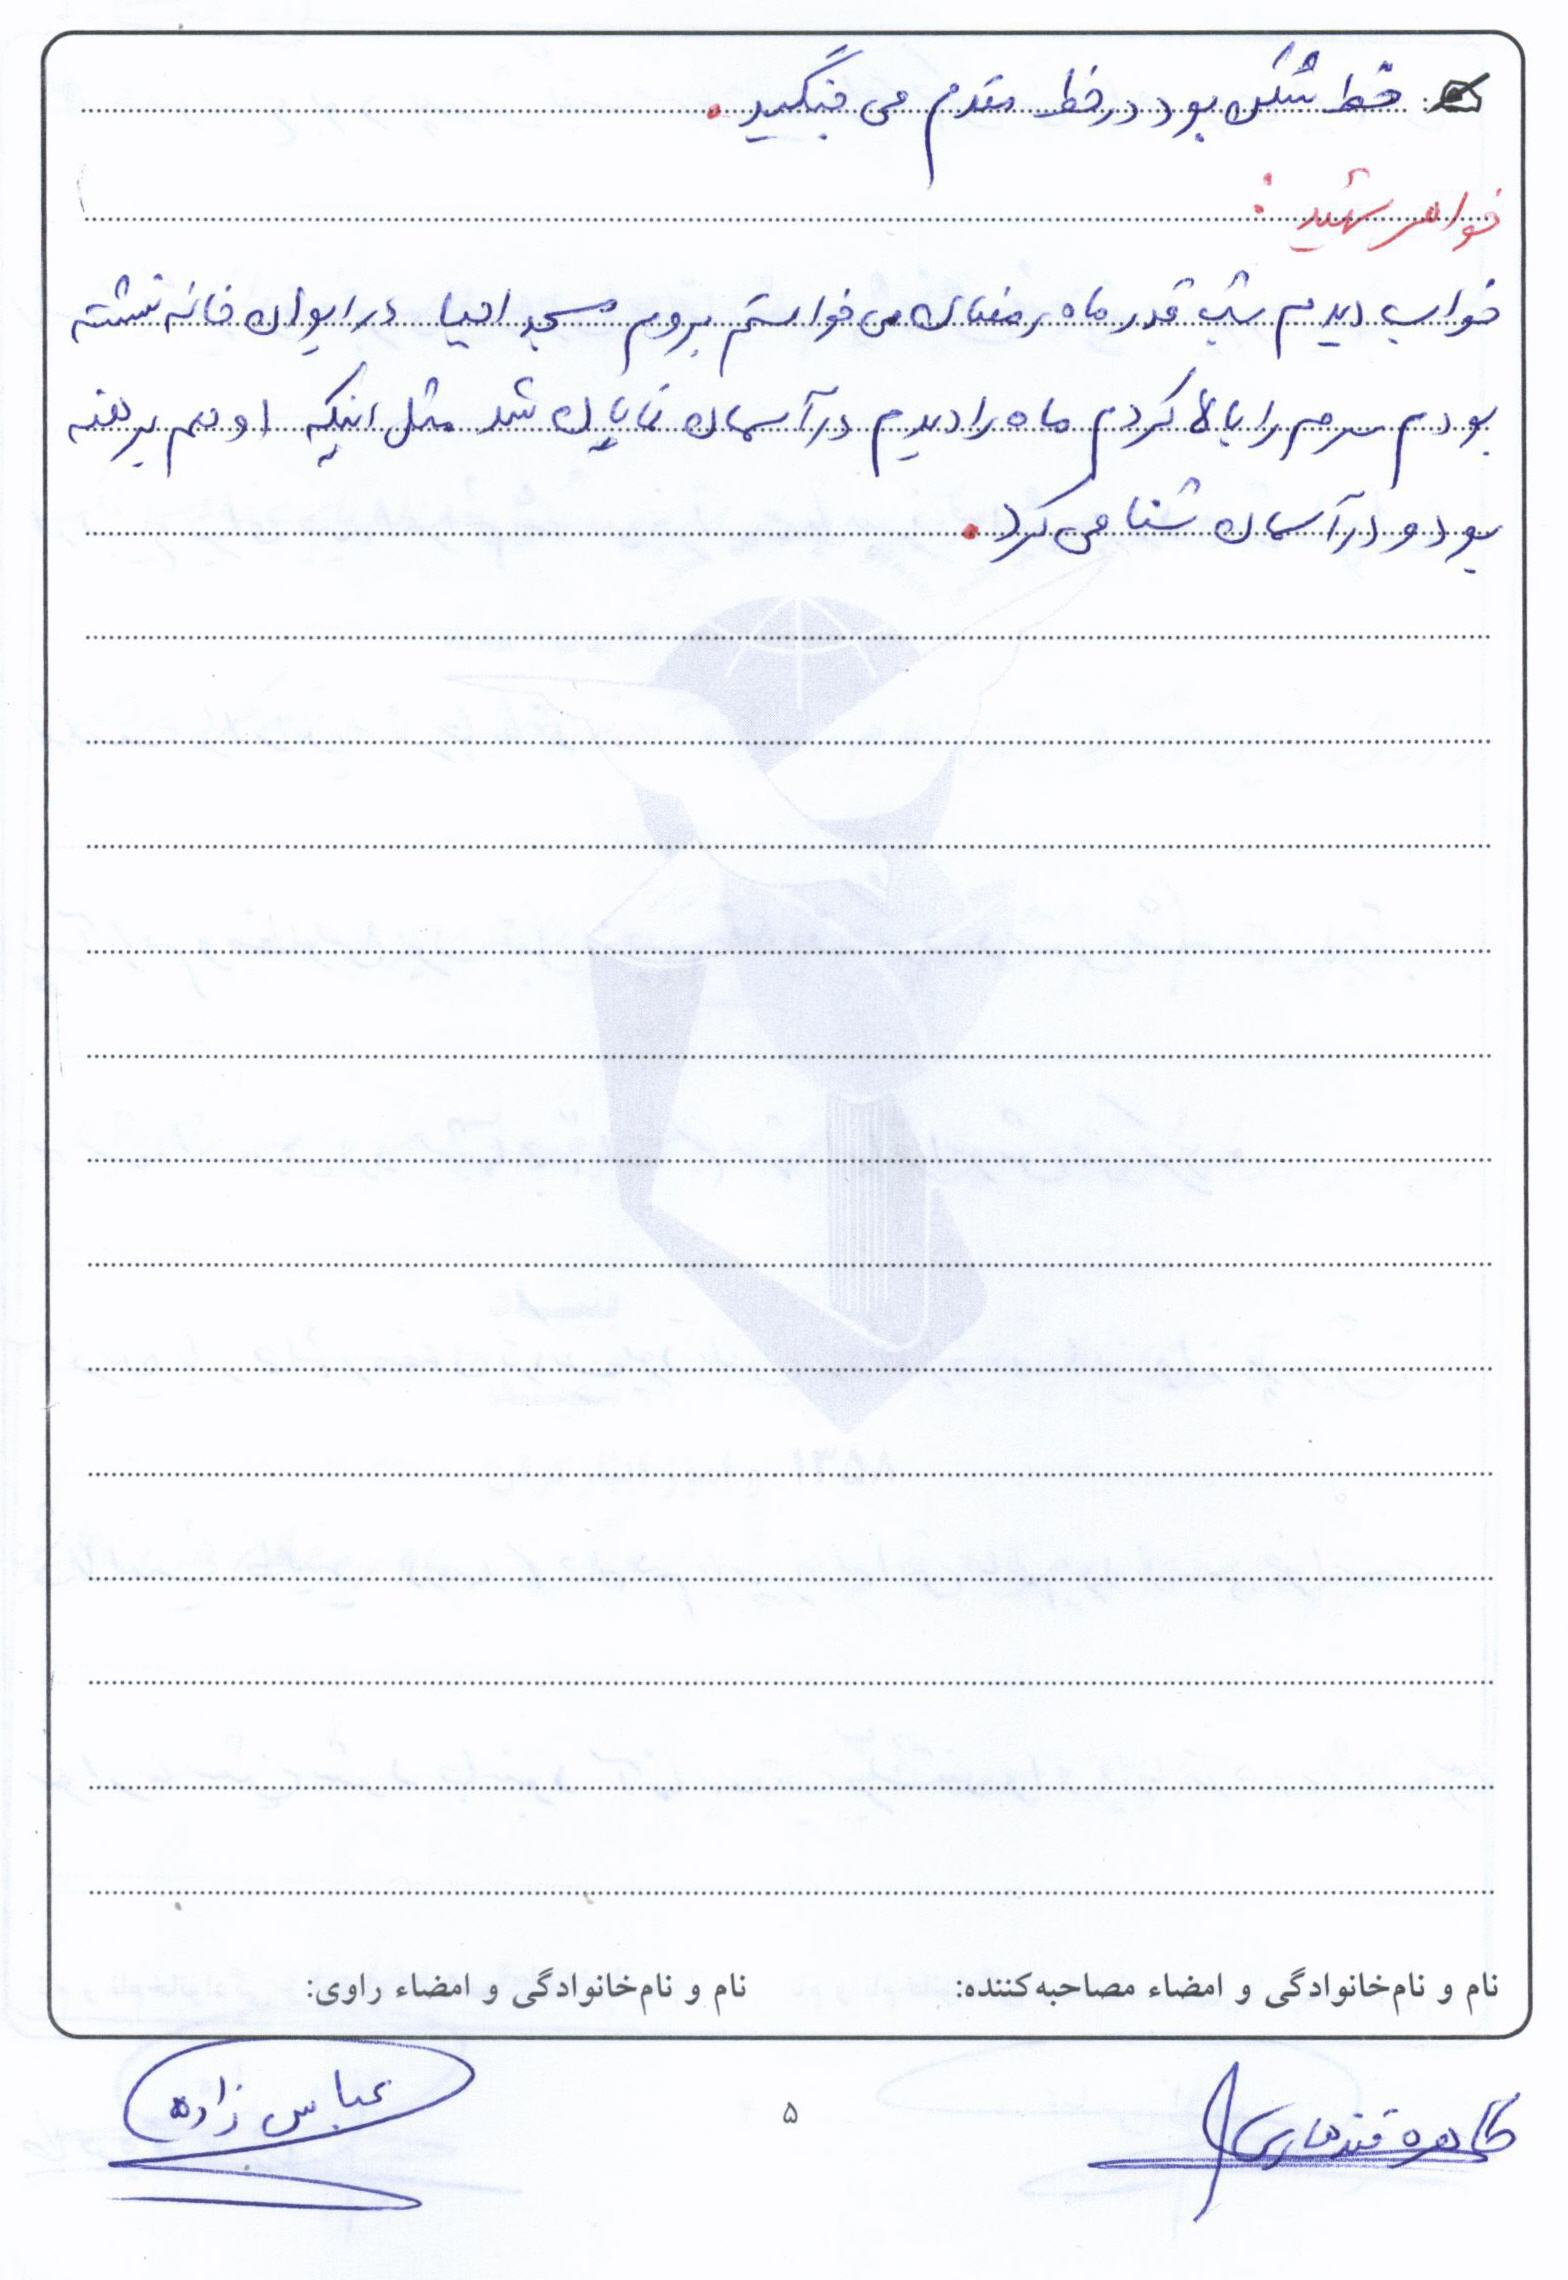 خط شکن بود در خط مقدم می جنگید.
خواهر شهید:
خواب دیدم شب قدر ماه رمضان می خواستم بروم مسجد احیا در ایوان خانه نشسته
بودم سرم را بالا کردم ماه را دیدم در آسمان نمایان شد مثل اینکه او هم برهنه
بود و در آسمان شنا می کرد.
نام و نام‌خانوادگی و امضاء مصاحبه‌کننده:
نام و نام‌خانوادگی و امضاء راوی:
طاهره قندهاری
۵
عباس زاده